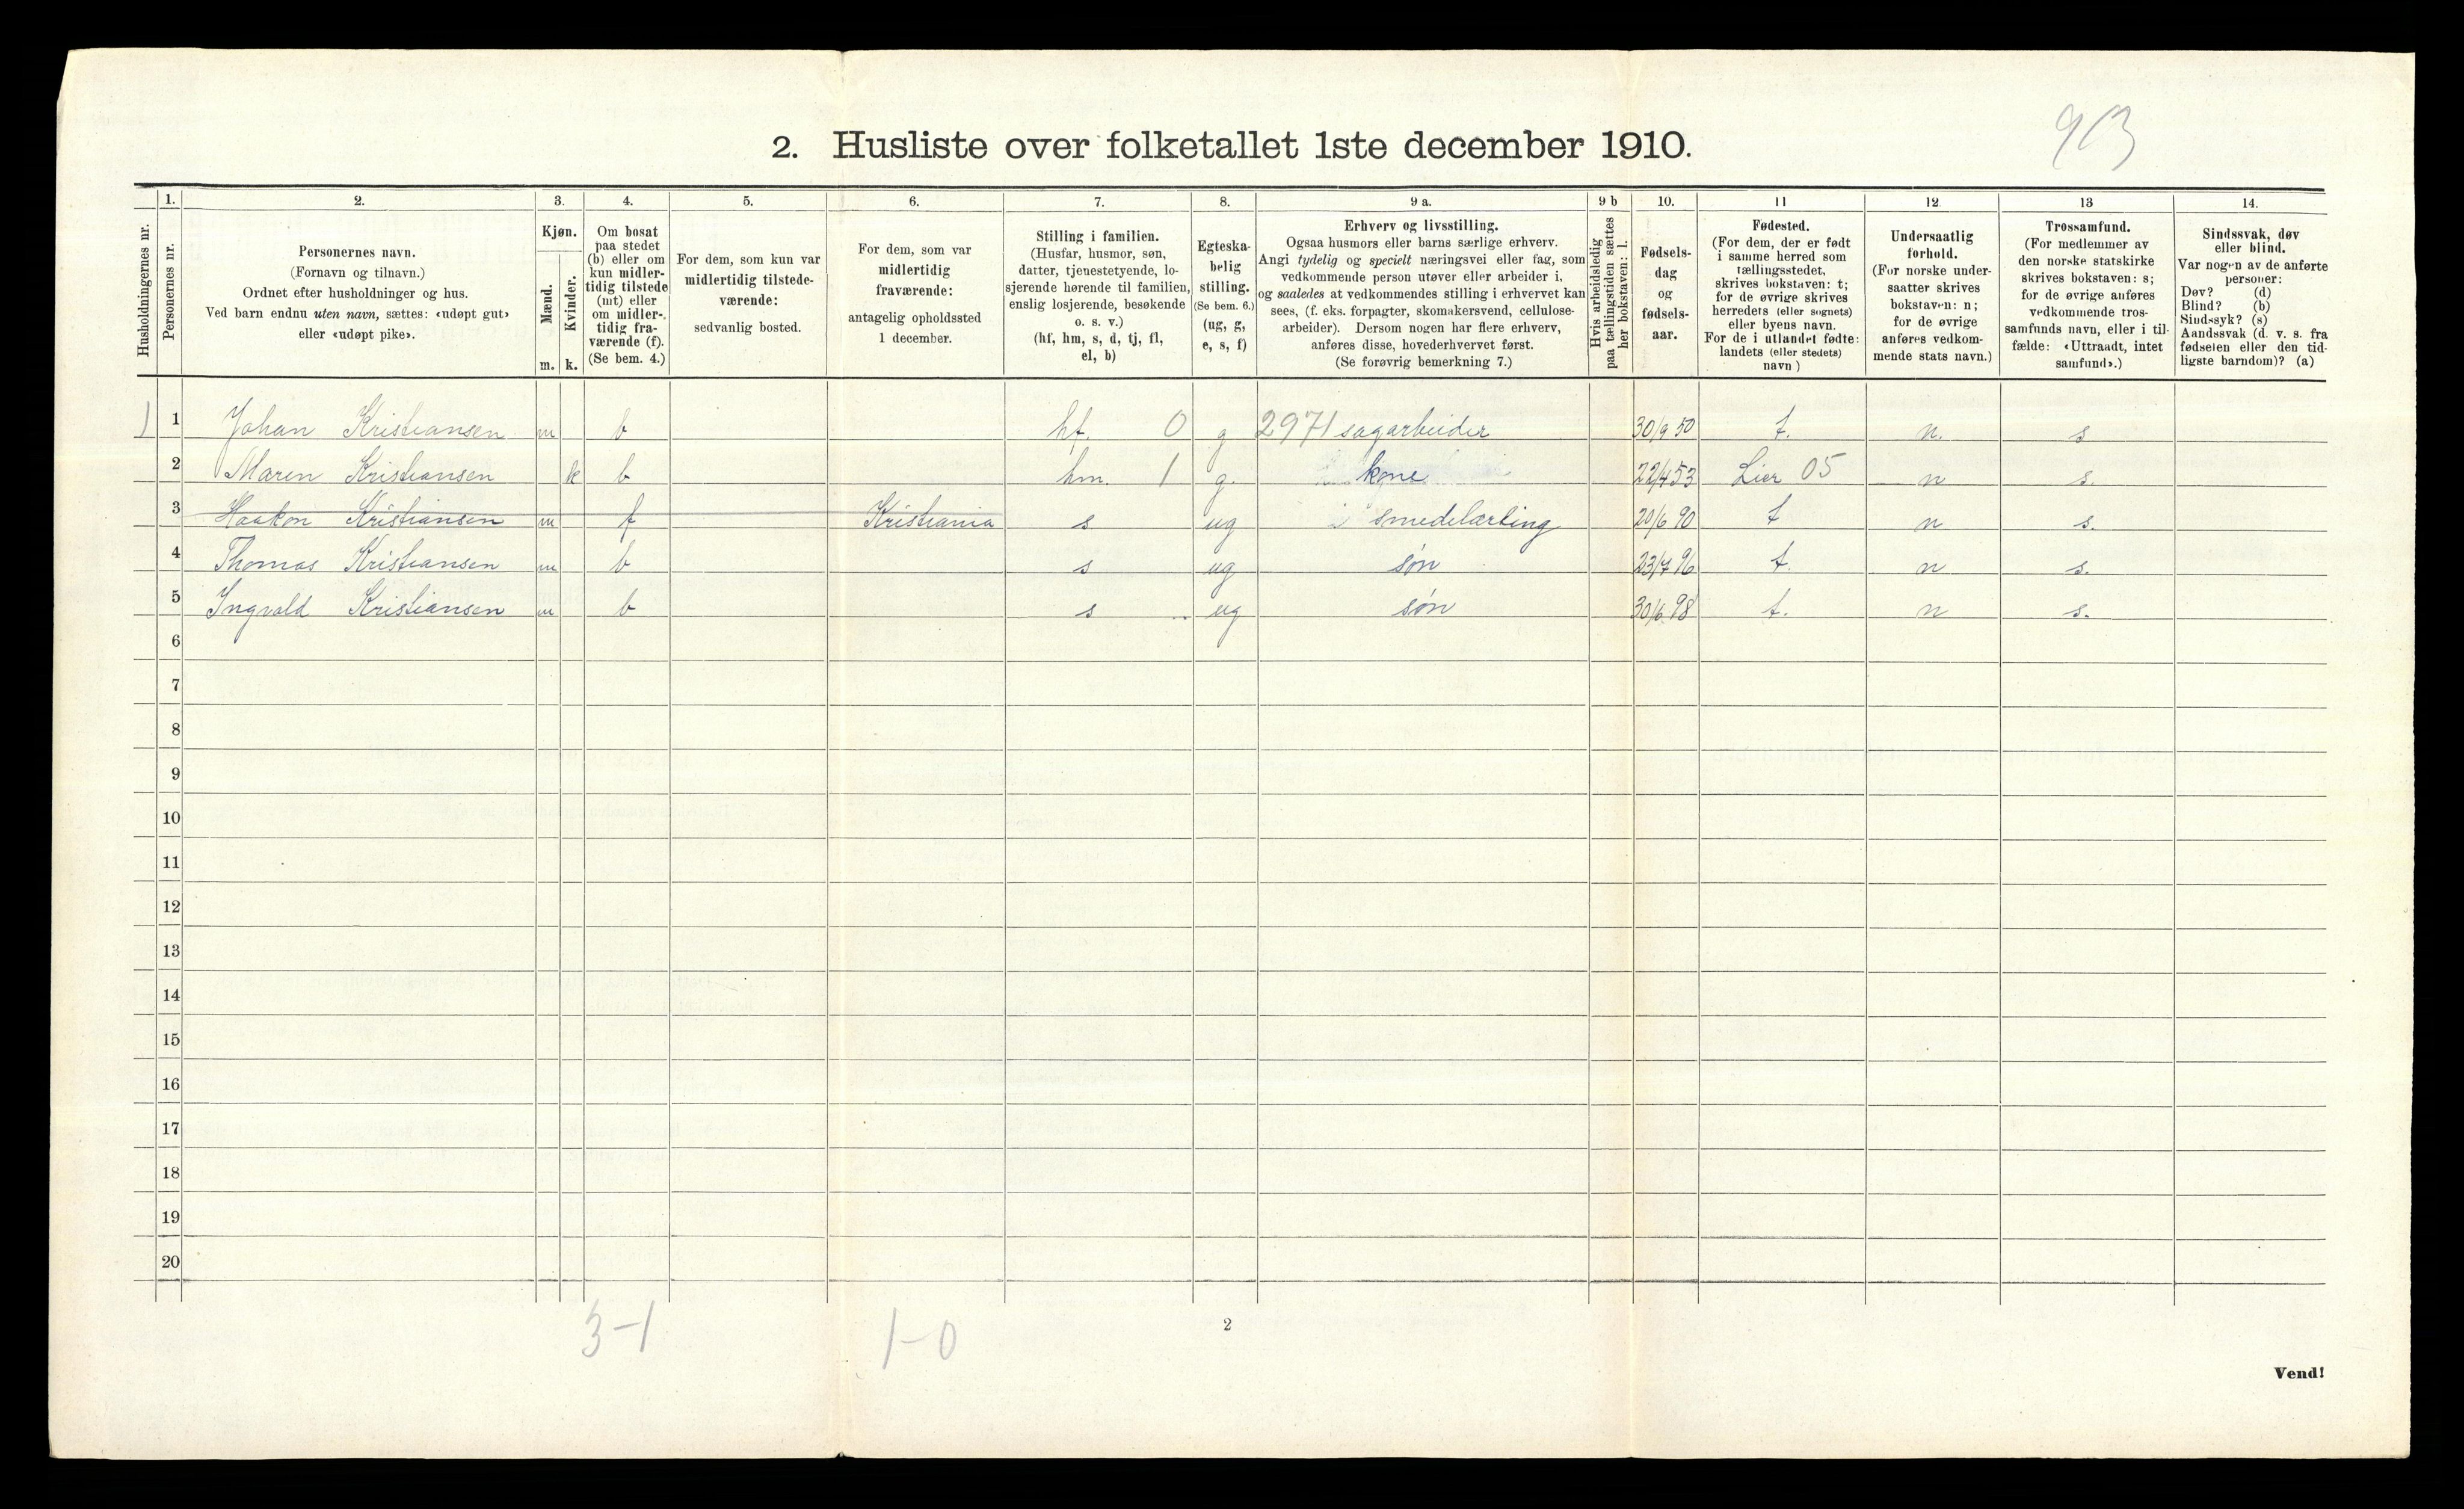 903
2. Husliste over folketallet 1ste december 1910.
Husholdningernes nr.
1.
Personernes nr.
2.
Personernes navn.
(Fornavn og tilnavn.)
Ordnet efter husholdninger og hus.
Ved barn endnu uten navn, sættes: «udøpt gut»
eller «udøpt pike».
3.
Kjøn.
Mænd.
Kvinder.
m. k.
4.
Om bosat
paa stedet
(b) eller om
kun midler-
tidig tilstede
(mt) eller
om midler-
tidig fra-
værende (f).
(Se bem. 4.)
5.
For dem, som kun var
midlertidig tilstede-
værende:
sedvanlig bosted.
6.
For dem, som var
midlertidig
fraværende:
antagelig opholdssted
1 december.
7.
Stilling i familien.
(Husfar, husmor, søn,
datter, tjenestetyende, lo-
sjerende hørende til familien,
enslig losjerende, besøkende
o. s. v.)
(hf, hm, s, d, tj, fl,
el, b)
8.
Egteska-
belig
stilling.
(Se bem. 6.)
(ug, g,
e, s, f)
9 a.
Erhverv og livsstilling.
Ogsaa husmors eller barns særlige erhverv.
Angi tydelig og specielt næringsvei eller fag, som
vedkommende person utøver eller arbeider i,
og saaledes at vedkommendes stilling i erhvervet kan
sees, (f. eks. forpagter, skomakersvend, cellulose-
arbeider). Dersom nogen har flere erhverv,
anføres disse, hovederhvervet først.
(Se forøvrig bemerkning 7.)
9 b
Hvis arbeidsledig
paa tællingstiden sættes
her bokstaven: l.
10.
Fødsels-
dag
og
fødsels-
aar.
11
Fødested.
(For dem, der er født
i samme herred som
tællingsstedet,
skrives bokstaven: t;
for de øvrige skrives
herredets (eller sognets)
eller byens navn.
For de i utlandet fødte:
landets (eller stedets)
navn)
12
Undersaatlig
forhold.
(For norske under-
saatter skrives
bokstaven: n;
for de øvrige
anføres vedkom-
mende stats navn.)
13
Trossamfund.
(For medlemmer av
den norske statskirke
skrives bokstaven: s;
for de øvrige anføres
vedkommende tros-
samfunds navn, eller i til-
fælde: «Uttraadt, intet
samfund».)
14.
Sindssvak, døv
eller blind.
Var nogen av de anførte
personer:
Døv? (d)
Blind? (b)
Sindssyk? (s)
Aandssvak (d. v. s. fra
fødselen eller den tid-
ligste barndom)? (a)
1 1 Johan Kristiansen m b hf. 0 g 2971 sagarbeider 30/9 50 t. n. s
2 Maren Kristiansen k b hm. 1 g. kone 22/4 53 Lier 05 n s.
3 Haakon Kristiansen m f Kristiania s ug smedelærling 20/6 90 t n s.
4 Thomas Kristiansen m b s ug søn 23/7 96 t n s.
5 Ingvald Kristiansen m b s ug søn 30/6 98 t. n s.
6
7
8
9
10
11
12
13
14
15
16
17
18
19
20
3-1 1-0
2
Vend!